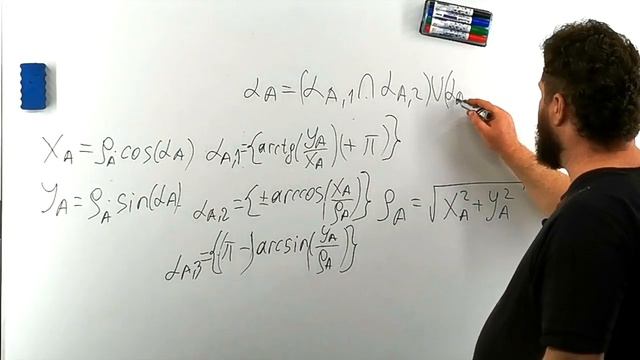 α_A = (α_{A,1} ∩ α_{A,2}) ∪ (α_A
X_A = ρ_A · cos(α_A) α_{A,1} = {arctg(y_A/x_A)(+π)}
y_A = ρ_A · sin(α_A) α_{A,2} = {± arccos(x_A/ρ_A)} ρ_A = √(x_A² + y_A²)
α_{A,3} = {(π −) arcsin(y_A/ρ_A)}